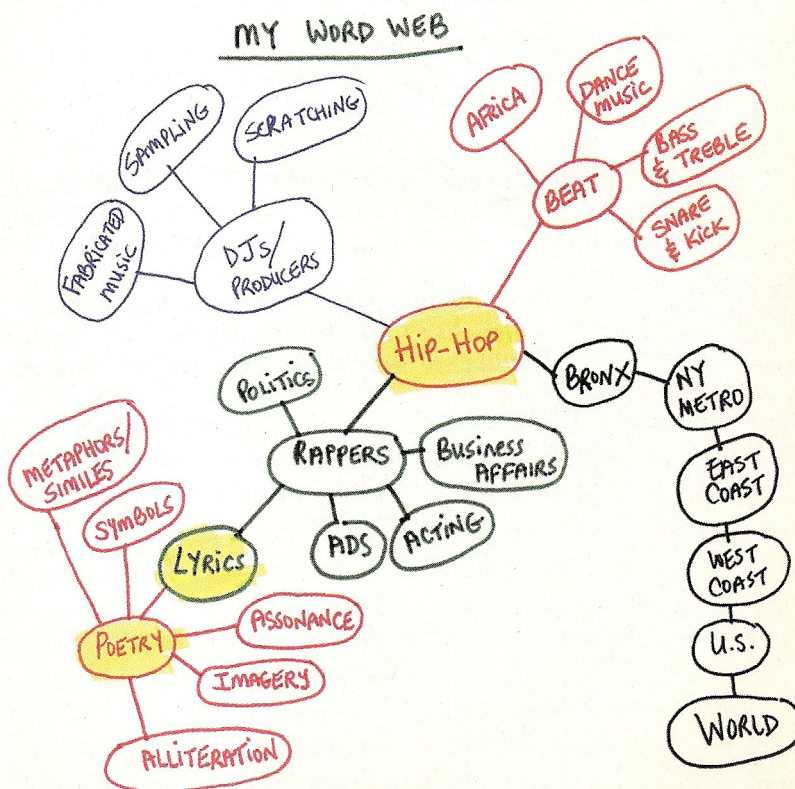 MY WORD WEB
SAMPLING
SCRATCHING
FABRICATED
MUSIC
DJs/
PRODUCERS
AFRICA
DANCE
MUSIC
BASS
& TREBLE
SNARE
& KICK
BEAT
HIP-HOP
BRONX
NY
METRO
EAST
COAST
WEST
COAST
U.S.
WORLD
POLITICS
RAPPERS
BUSINESS
AFFAIRS
ADS
ACTING
LYRICS
METAPHORS/
SIMILES
SYMBOLS
POETRY
ASSONANCE
IMAGERY
ALLITERATION